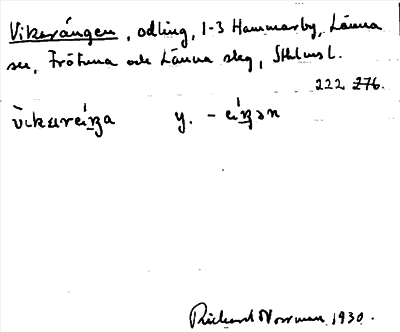 Vikarängen, odling, 1-3 Hammarby, Länna
sn, Frötuna och Länna skg, Sthlms l.
222 276.
vìkareŋ́a y. - eŋ́ən
Richard Norrman 1930.